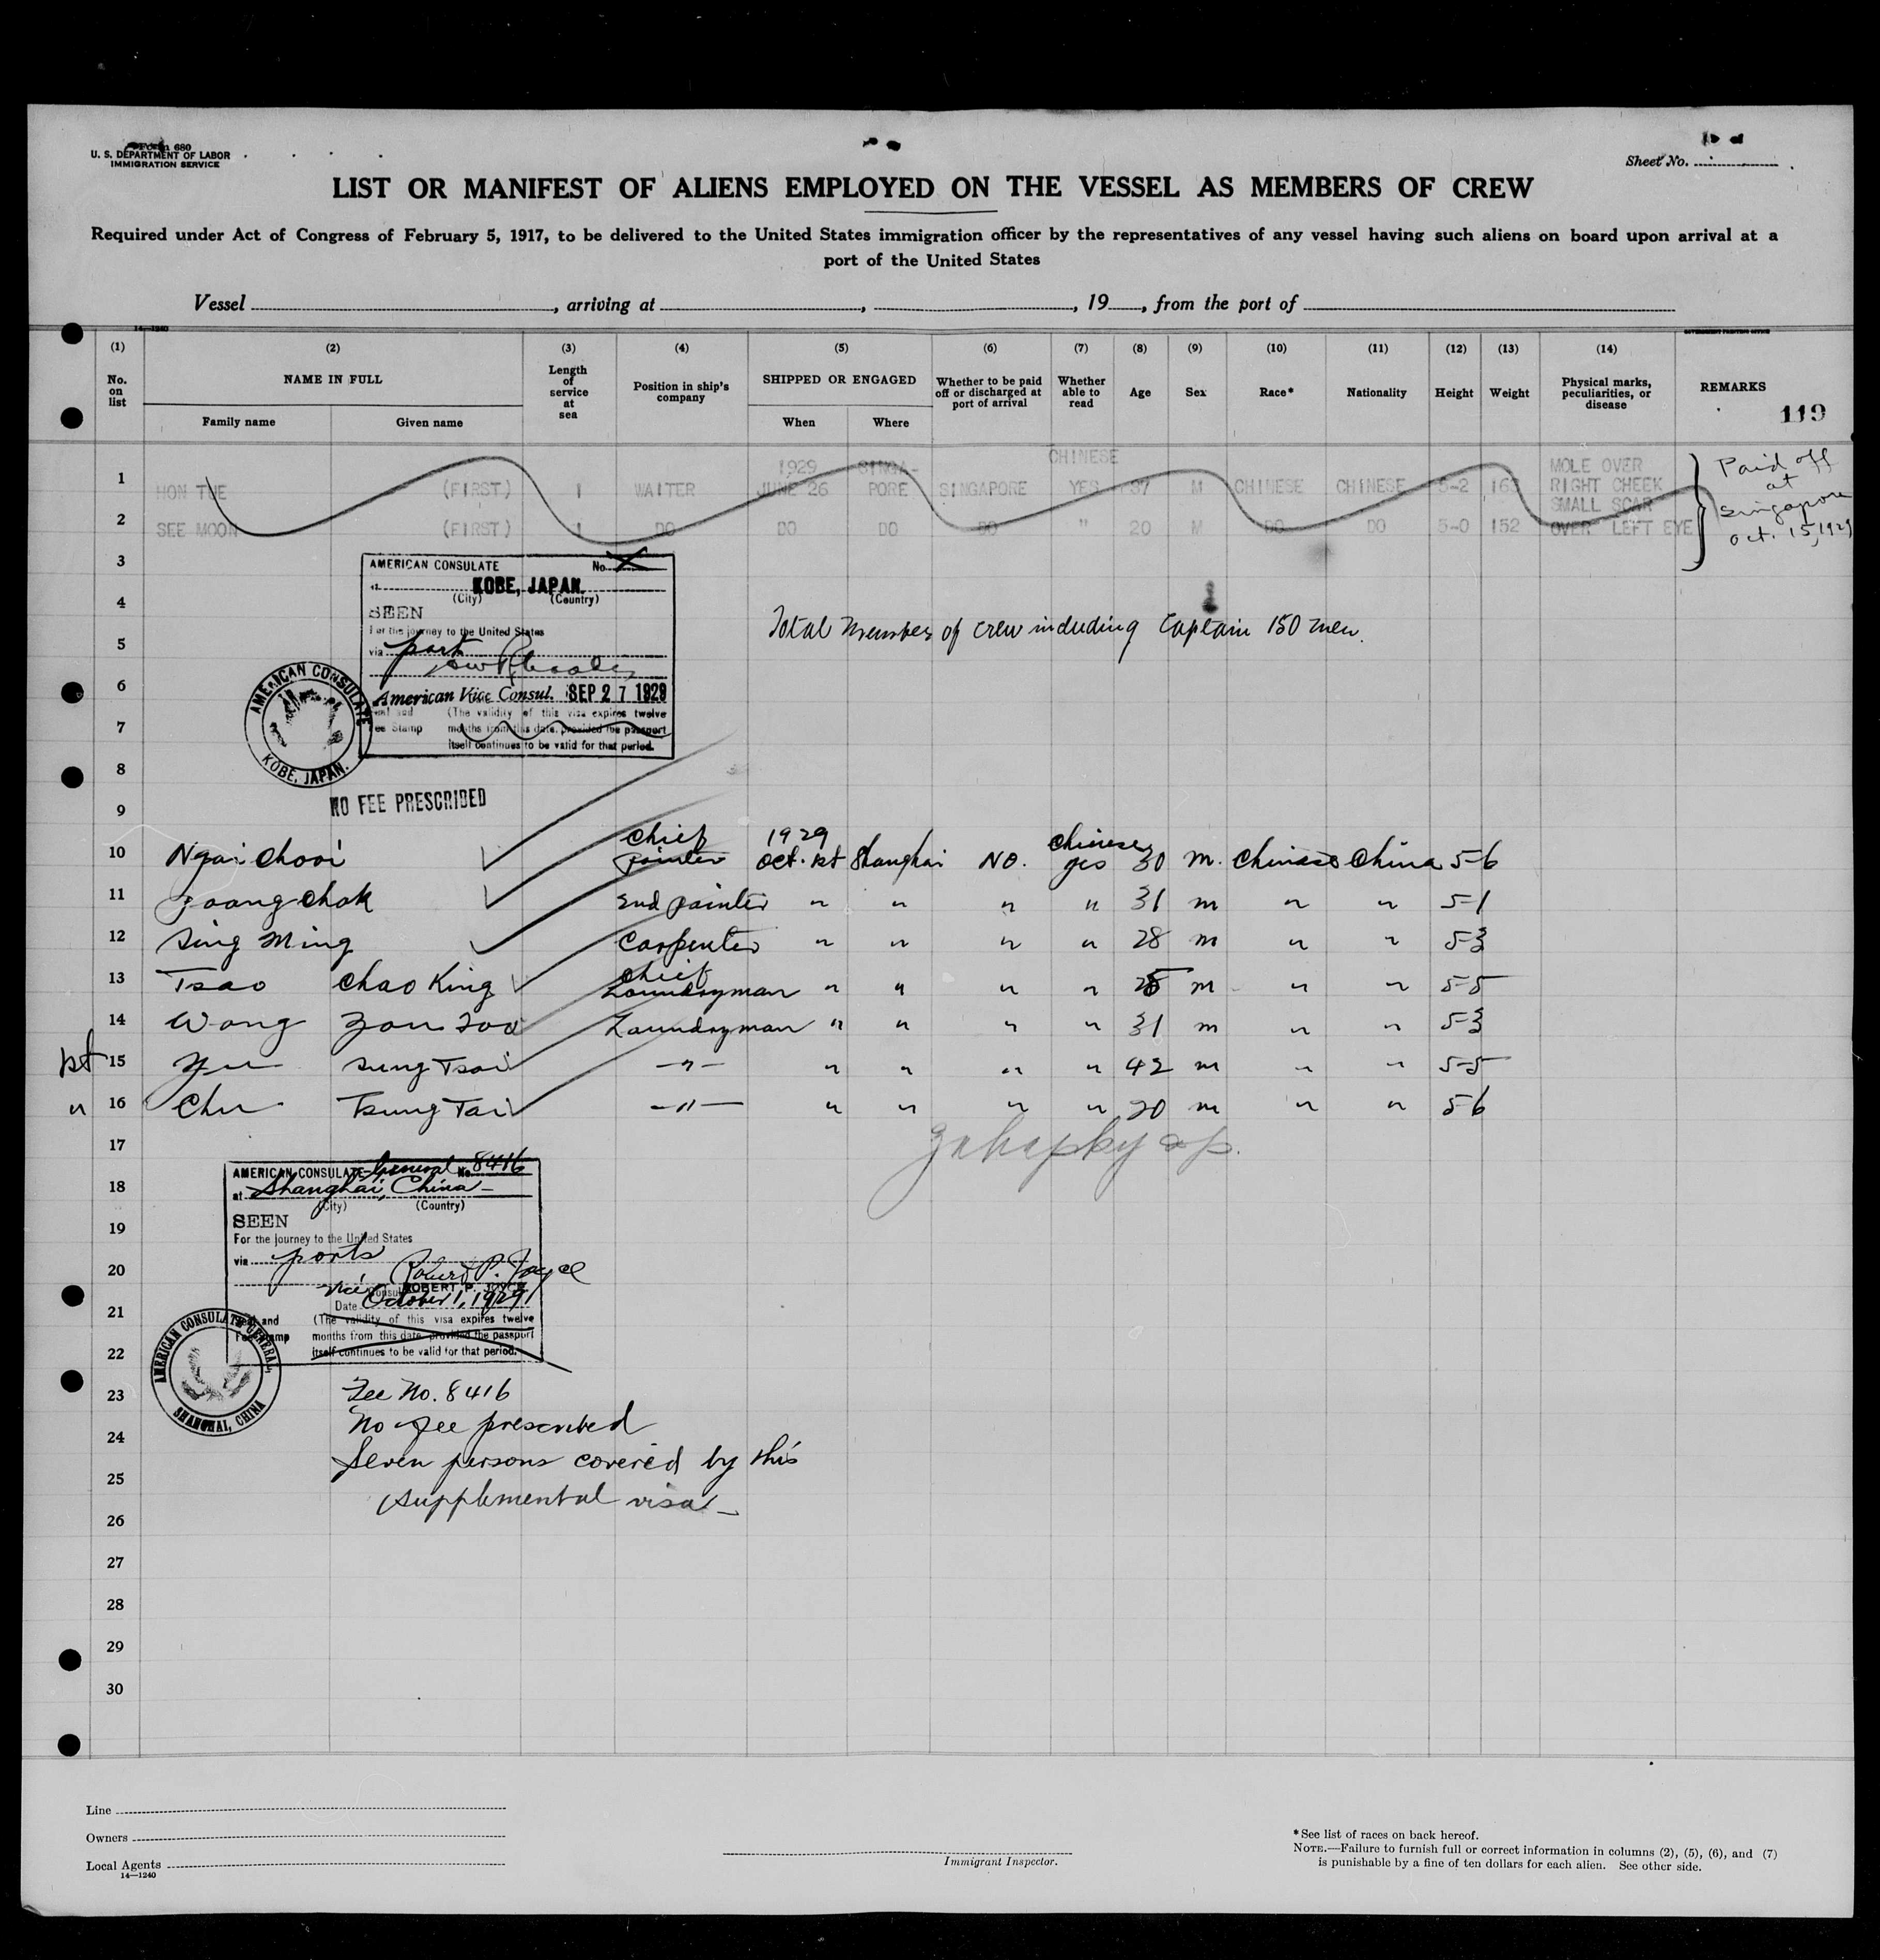 Form 680
U. S. DEPARTMENT OF LABOR
IMMIGRATION SERVICE
Sheet No.
LIST OR MANIFEST OF ALIENS EMPLOYED ON THE VESSEL AS MEMBERS OF CREW
Required under Act of Congress of February 5, 1917, to be delivered to the United States immigration officer by the representatives of any vessel having such aliens on board upon arrival at a
port of the United States
Vessel , arriving at , , 19 , from the port of
14—1240
GOVERNMENT PRINTING OFFICE
(1) (2) (3) (4) (5) (6) (7) (8) (9) (10) (11) (12) (13) (14)
No. on list NAME IN FULL Length of service at sea Position in ship's company SHIPPED OR ENGAGED Whether to be paid off or discharged at port of arrival Whether able to read Age Sex Race* Nationality Height Weight Physical marks, peculiarities, or disease REMARKS
119
Family name Given name When Where
1 HON TUE (FIRST) 1 WAITER 1929 JUNE 26 SINGA-PORE SINGAPORE CHINESE YES 37 M CHINESE CHINESE 5-2 163 MOLE OVER RIGHT CHEEK
2 SEE MOON (FIRST) 1 DO DO DO DO " 20 M DO DO 5-0 152 SMALL SCAR OVER LEFT EYE
Paid off
at
Singapore
Oct. 15, 1929
3
4
5
6
7
8
9
AMERICAN CONSULATE No.
at KOBE, JAPAN.
(City) (Country)
SEEN
For the journey to the United States
via port
American Vice Consul. SEP 27 1929
(The validity of this visa expires twelve
Fee Stamp months from this date, provided the passport
itself continues to be valid for that period.
AMERICAN CONSULATE
KOBE, JAPAN.
NO FEE PRESCRIBED
Total Members of crew including Captain 150 men.
10 Ngai Chooi Chief painter 1929 Oct. 1st Shanghai NO. Chinese yes 30 M. Chinese China 5-6
11 Zoong Chok 2nd painter " " " " 31 m " " 5-1
12 Sing Ming Carpenter " " " " 28 m " " 5-3
13 Tsao Chao King Chief Laundryman " " " " 25 m " " 5-5
14 Wong Laundryman " " " " 31 m " " 5-3
1st 15 Yu Sung Tsai —"— " " " " 42 m " " 5-5
" 16 Chu Tsung Tai —"— " " " " 20 m " " 5-6
17
18
19
20
21
22
AMERICAN CONSULATE-General No. 8416
at Shanghai, China
(City) (Country)
SEEN
For the journey to the United States
via ports
Robert P. Joyce
Vice Consul ROBERT P. JOYCE
Date October 1, 1929
(The validity of this visa expires twelve
months from this date, provided the passport
itself continues to be valid for that period.
AMERICAN CONSULATE GENERAL,
SHANGHAI, CHINA
23 Fee No. 8416
24 No fee prescribed
25 Seven persons covered by this
26 supplemental visa —
27
28
29
30
Line
Owners
Local Agents
14—1240
Immigrant Inspector.
*See list of races on back hereof.
NOTE.—Failure to furnish full or correct information in columns (2), (5), (6), and (7)
is punishable by a fine of ten dollars for each alien. See other side.